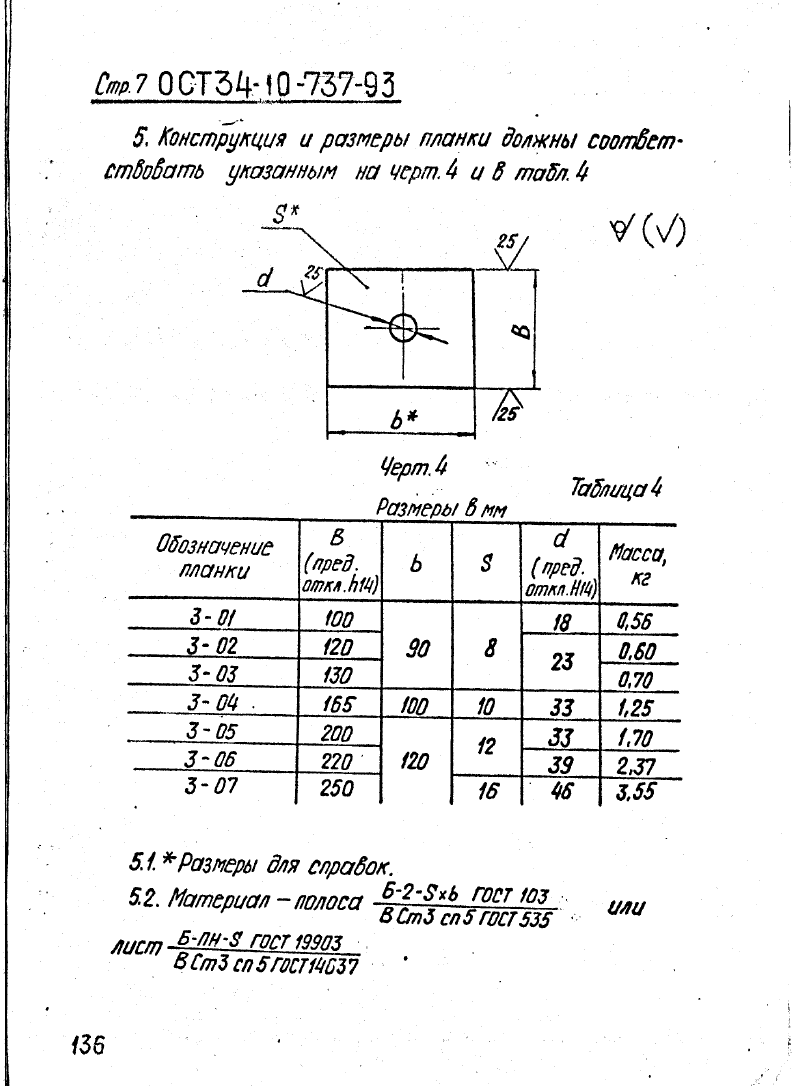 Стр.7 ОСТ34-10-737-93
5. Конструкция и размеры планки должны соответ-
ствовать указанным на черт.4 и в табл.4
S*
25
√(√)
d
25
B
b*
25
Черт.4
Таблица 4
Размеры в мм
Обозначение планки | B (пред. откл.h14) | b | S | d (пред. откл.H14) | Масса, кг
3-01 | 100 | 90 | 8 | 18 | 0,56
3-02 | 120 | 23 | 0,60
3-03 | 130 | 0,70
3-04 | 165 | 100 | 10 | 33 | 1,25
3-05 | 200 | 120 | 12 | 33 | 1,70
3-06 | 220 | 39 | 2,37
3-07 | 250 | 16 | 46 | 3,55
5.1. *Размеры для справок.
5.2. Материал – полоса Б-2-Sxb ГОСТ 103 или
ВСт3 сп5 ГОСТ 535
лист Б-ПН-S ГОСТ 19903
ВСт3 сп5 ГОСТ14637
136